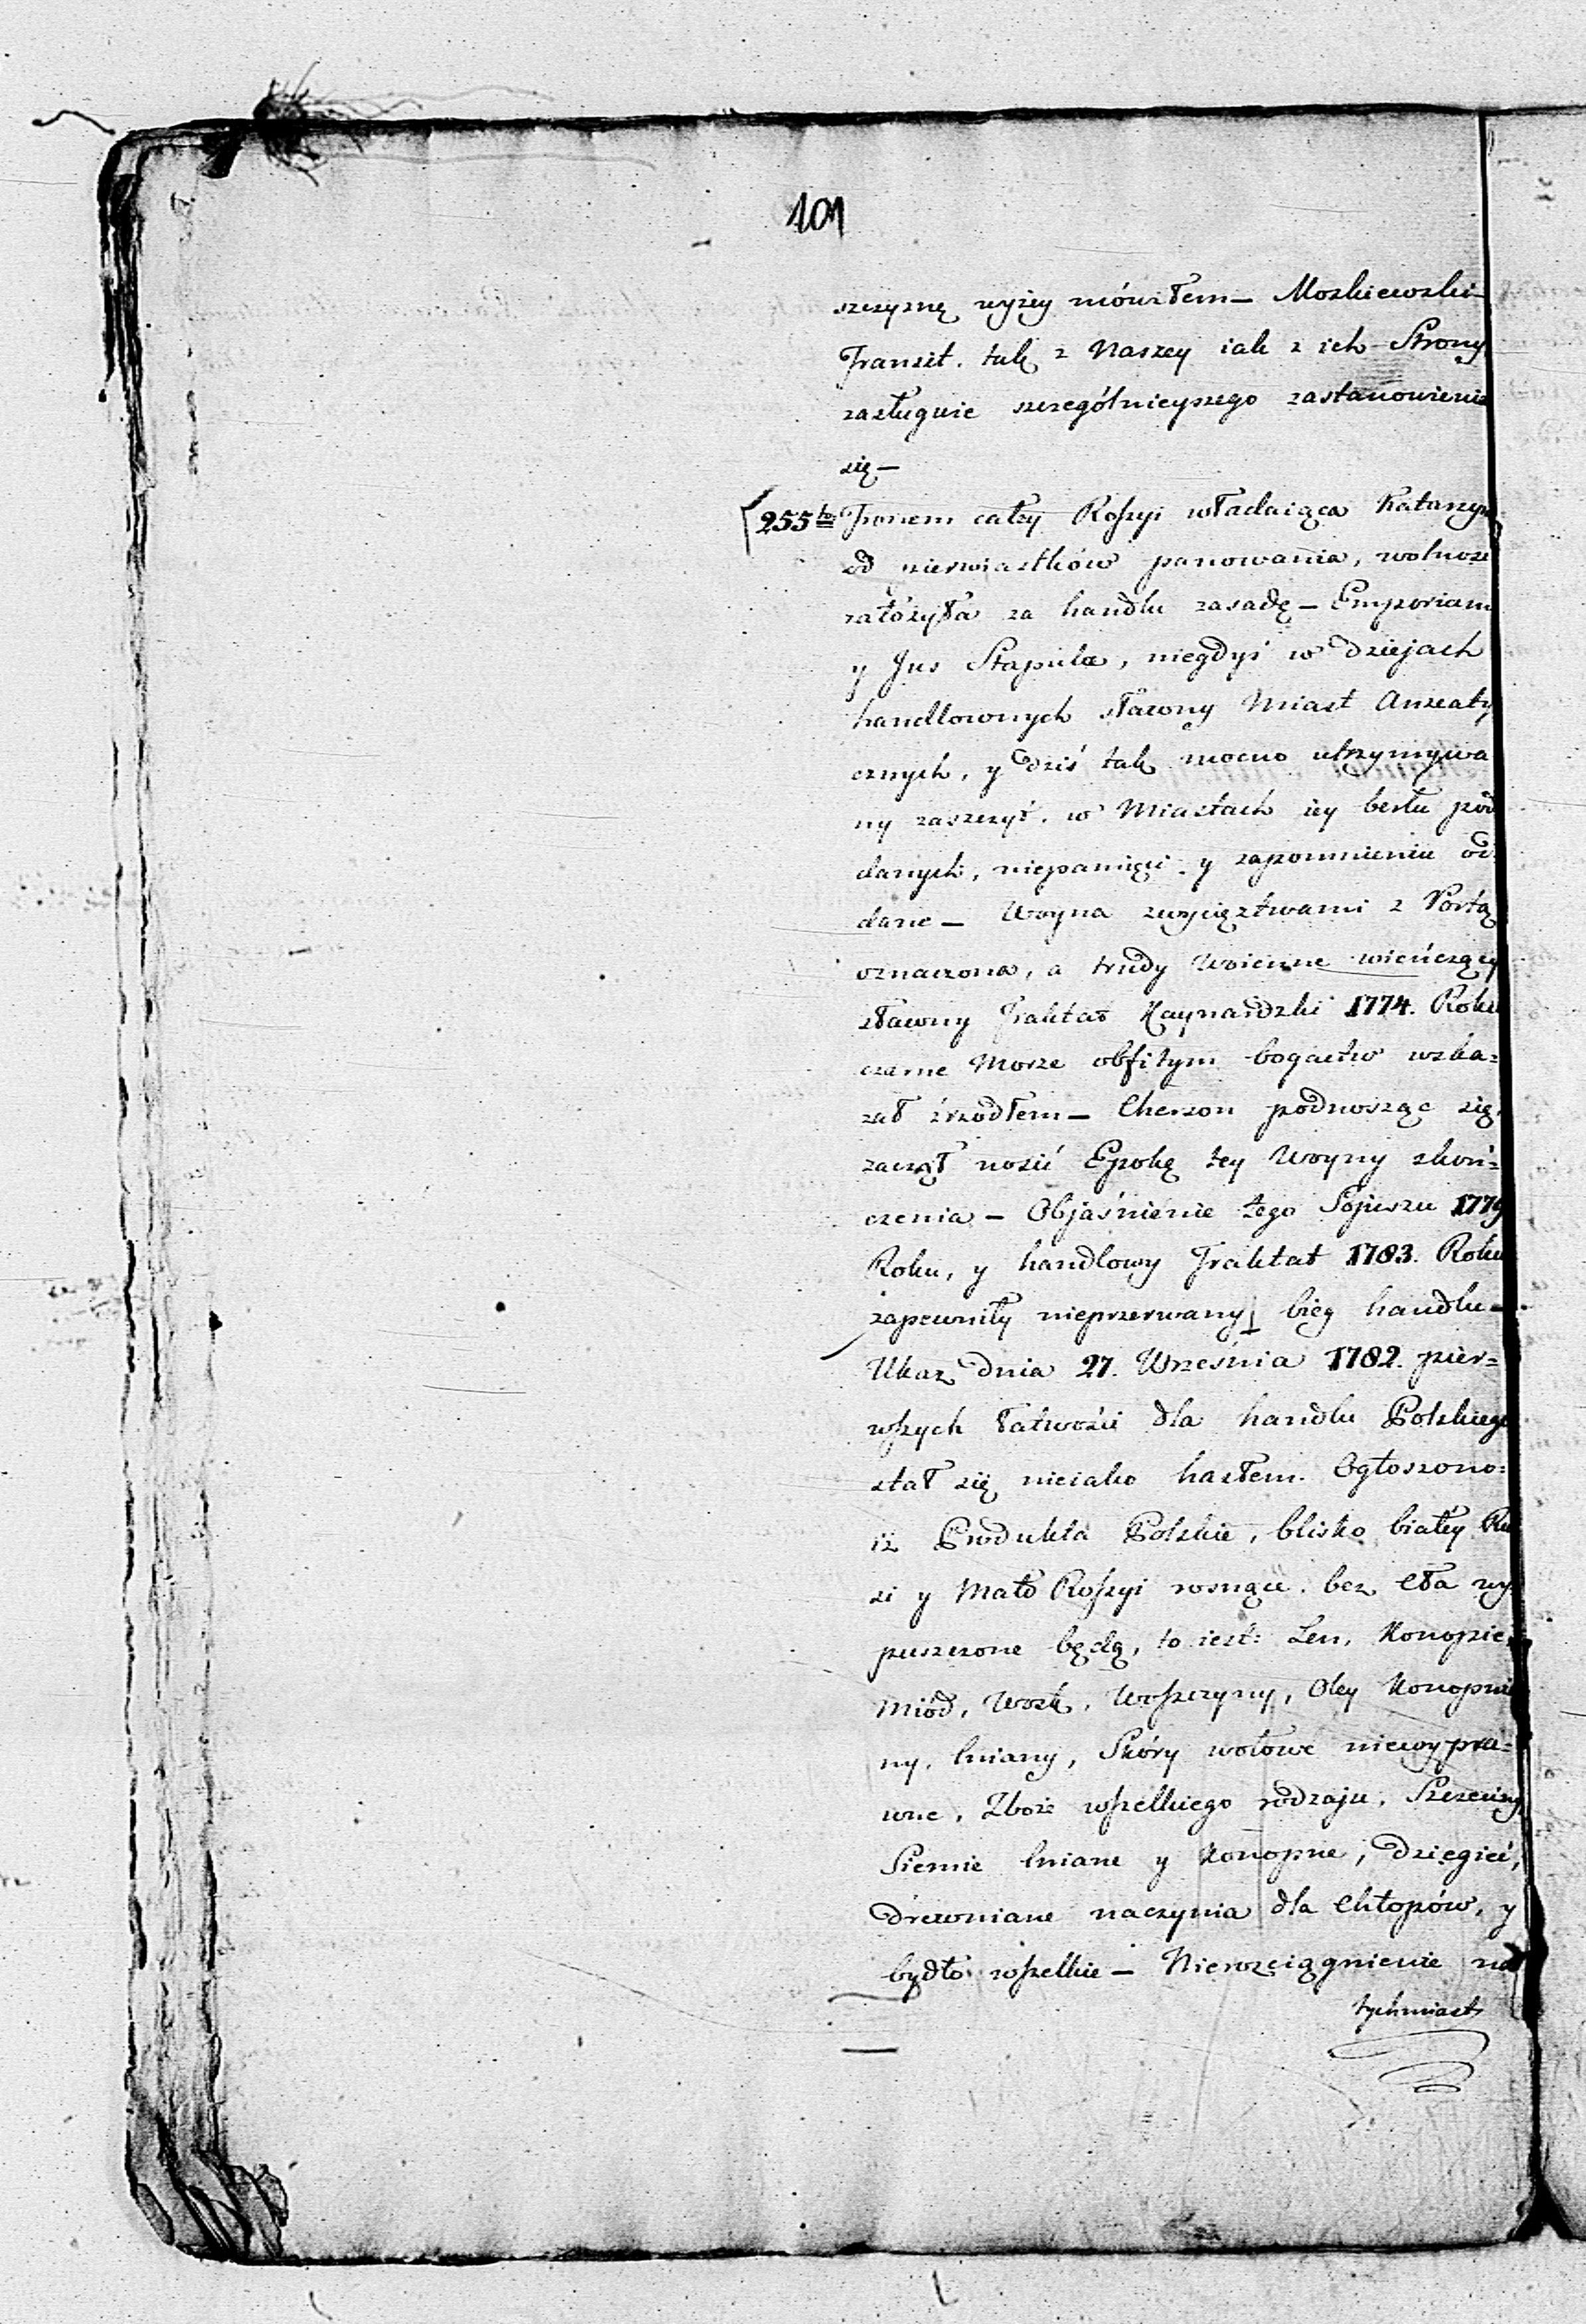 101
szczyznę wyżey mówiłem — Moskiewski
Tranzit. tak z Naszey iak z ich Strony
zasługuie szczególnieyszego zastanowienia
się —
255to Tronem całey Roſsyi władaiąca Katarzyn
od pierwiastków panowania, wolnosc
założyła za handlu zasadę — Emporium
y Jus Stapulæ, niegdyś w dziejach
handlownych sławny Miast Anzeaty
cznych, y dziś tak mocno utrzymywa
ny zaszczyt. w Miastach iey berłu pod
danych, niepamięci y zapomnieniu od
dane — Woyna zwycięztwami z Portą
oznaczona, a trudy Woienne wieńczący
sławny Traktat Kaynardzki 1774. Roku
czarne Morze obfitym bogactw wska=
zał zrzodłem — Cherson podnosząc się,
zaczął nosić Epokę tey Woyny skoń=
czenia — Objaśnienie tego Sojuszu 1779
Roku, y handlowy Traktat 1783. Roku
zapewniły nieprzerwany bieg handlu —
Ukaz dnia 27. Września 1782. pier=
wſzych łatwości dla handlu Polskiego
stał się nieiako hasłem. Ogłoszono:
iż Produkta Polskie, blisko białey Ru
si y Mało Roſsyi rosnące. bez Cła wy
puszczone będą, to iest: Len, Konopie,
Miód, Wosk, Woſzczyny, Oley Konopnia
ny, lniany, Skóry wołowe niewypra=
wne, Zboże wſzelkiego rodzaju, Szczeciny
Siemie lniane y Konopne, Dziegieć,
Drewniane naczynia dla Chłopów, y
bydło wſzelkie — Nierozciągnienie na
tychmiast